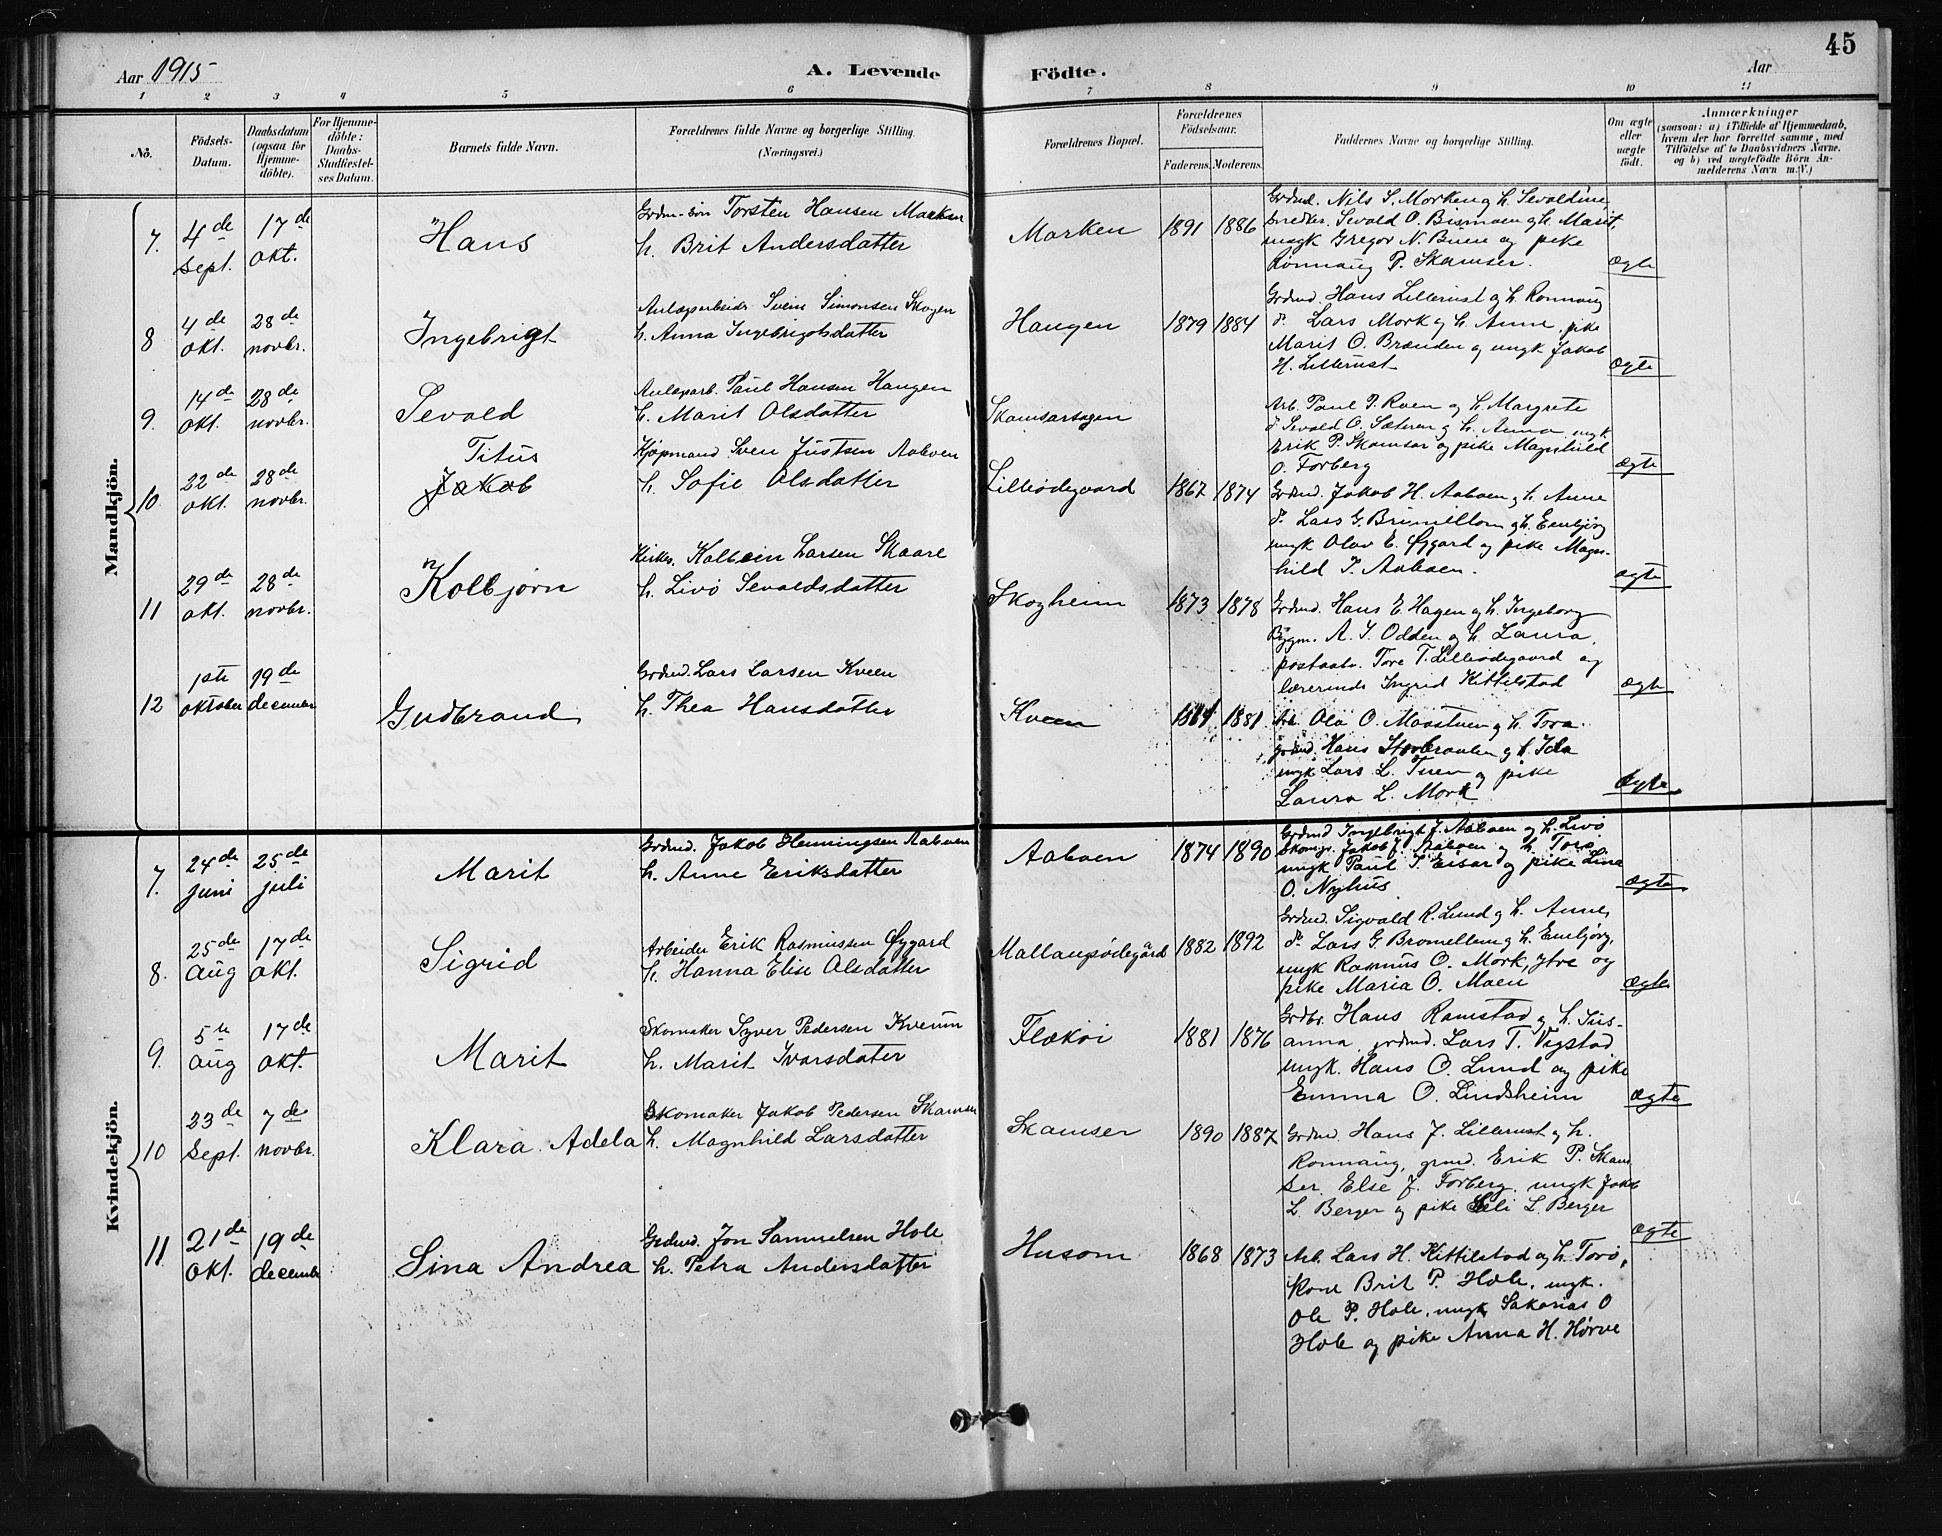 45
Aar 1915
A. Levende
Födte.
Aar
1 2 3 4 5 6 7 8 9 10 11
No.
Födsels-
Datum.
Daabsdatum
(ogsaa for
Hjemme-
döbte).
For Hjemme-
döbte:
Daabs-
Stadfæstel-
ses Datum.
Barnets fulde Navn.
Forældrenes fulde Navne og borgerlige Stilling.
(Næringsvei.)
Forældrenes Bopæl.
Forældrenes
Födselsaar.
Faderens. Moderens.
Faddernes Navne og borgerlige Stilling.
Om ægte
eller
uægte
födt.
Anmærkninger
(saasom: a) i Tilfælde af Hjemmedaab,
hvem der har forrettet samme, med
Tilföielse af to Daabsvidners Navne.
og b) ved uægtefödte Börn An-
melderens Navn m. V.)
Mandkjön.
7. 4de Sept. 17de Okt.
Hans
Grdm.-søn Torsten Hansen Marken
h. Brit Andersdatter
Marken 1891 1886
Grdmd. Nils S. Morken og h. Sevoldine
Snedker. Sevald O. Bismoen og h. Marit,
ungk Gregor N. Buen og pike
Rønnaug P. Skamser.
Ægte
8 4de Okt. 28de novbr.
Ingebrigt
Anlægsarbeider Svein Simonsen Skogen
h. Anna Ingebrigtsdatter
Haugen 1879 1884
Grdmd. Hans Lillerust og h. Rønnaug
do. Lars Mork og h. Anne, pike
Marit O. Brænden og ungk Jakob
H. Lillerust
Ægte
9. 14de okt. 28de novbr.
Sevald
Anlægsarb. Paul Hansen Haugen
h. Marit Olsdatter
Skamsarsagen
Arb. Paul P. Roen og h. Margrete
do Sevald O. Sæteren og h. Anna, ungk
Erik P. Skamsar og pike Magnhild
O. Forberg
Ægte
10. 22de okt. 28de novbr.
Titus
Jakob
Kjøpmand Sven Justsen Aaboen
h. Sofie Olsdatter
Lilleødegaard 1867 1874
Grdmd. Jakob H. Aaboen og h. Anne
do. Lars G. Brumillom og h. Embjørg
ungk Olav E. Øygard og pike Magn-
hild J. Aaboen.
ægte
11 29de okt. 28de novbr.
Kolbjørn
Kirkes. Kolbein Larsen Skaare
h. Livø Sevaldsdatter
Skogheim 1873 1878
Grdmd. Hans E. Hagen og h. Ingeborg
Bygm. A. I. Odden og h. Laura,
postaabn. Tore T. Lilleødegaard og
lærerinde Ingrid Kittilstad
Ægte
12 1ste oktober 19de december
Gudbrand
Grdmd. Lars Larsen Kveen
h. Thea Hansdatter
Kveen 1881
Arb. Ola O. Moastuen og h. Tora.
grdmd. Hans Storbraaten og h. Ida
ungk Lars L. Tuen og pike
Laura L. Mork
Ægte
Kvindekjön.
7. 24de juni 25de juli
Marit
Grdmd. Jakob Henningsen Aaboen
h. Anne Eriksdatter
Aaboen 1874 1890
Grdmd Ingebrigt J. Aaboen og h. Livø
Skomgr. Jakob J. Aaboen og h. Tora
ungk Paul T. Eisar og pike Lina
O. Nyhus
Ægte
8. 25de aug 17de okt.
Sigrid
Arbeider Erik Rasmussen Øygard
h. Hanna Elise Olsdatter
Mallaupsødegård 1882 1892
Grdmd. Sigvald R. Lund og h. Anne,
do. Lars G. Bromellem og h. Embjørg,
ungk Rasmus O. Mork, ytre og
pike Maria O. Moen
Ægte
9. 5te aug 17de okt.
Marit
Skomaker Syver Pedersen Kverum
h. Marit Ivarsdater
Flækøi 1881 1876
Grdbr. Hans Ramstad og h. Sus-
anna, grdmd. Lars T. Vigstad
ungk. Hans O. Lund og pike
Emma O. Lindsheim
Ægte
10 23de Sept. 7de novbr.
Klara Adela
Skomaker Jakob Pedersen Skamser
h. Magnhild Larsdatter
Skamser 1890 1887
Grdmd. Hans J. Lillerust og h.
Rønnaug, grmd. Erik P. Skam
ser. Else J. Forberg, ungk Jakob
L. Berger og pike Seli L. Berger
Ægte
11 21de okt. 19de december
Lina Andrea
Grdmd. Jon Samuelsen Hole
h. Petra Andersdatter
Husom 1868 1873
Arb. Lars H. Kittilstad og h. Torø,
kone Brit P. Hole, ungk.
Ole P. Hole, ungk Sakarias O
Hole og pike Anna H. Hørve